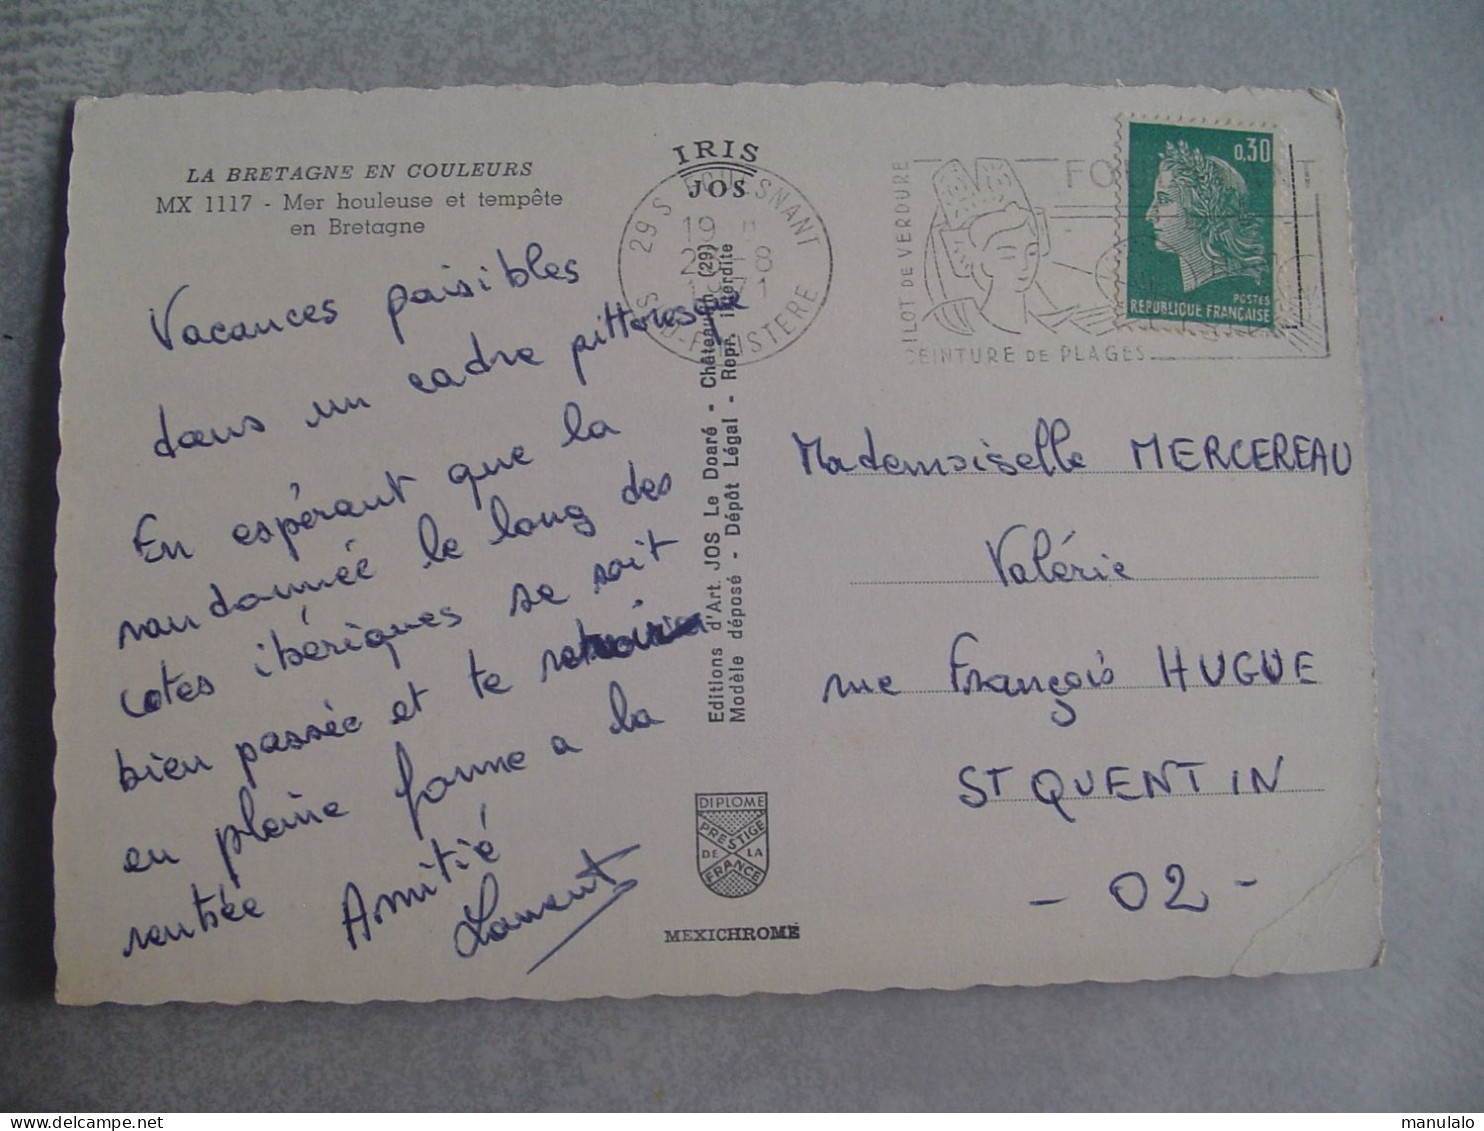 LA BRETAGNE EN COULEURS
MX 1117 - Mer houleuse et tempête
en Bretagne
Vacances paisibles
dans un cadre pittoresque
En espérant que la
randonnée le long des
cotes ibériques se soit
bien passée et te
en pleine forme a la
rentrée Amitié
Laurent
IRIS
JOS
29 S FOUESNANT
19 H
1971
SUD-FINISTERE
Editions d'Art. JOS Le Doaré - Châteaulin (29)
Modèle déposé - Dépôt Légal - Repr. interdite
DIPLOME
PRESTIGE
DE LA
FRANCE
MEXICHROME
ILOT DE VERDURE
CEINTURE DE PLAGES
0,30
POSTES
REPUBLIQUE FRANÇAISE
Mademoiselle MERCEREAU
Valérie
rue François HUGUE
ST QUENTIN
- 02 -
manulalo